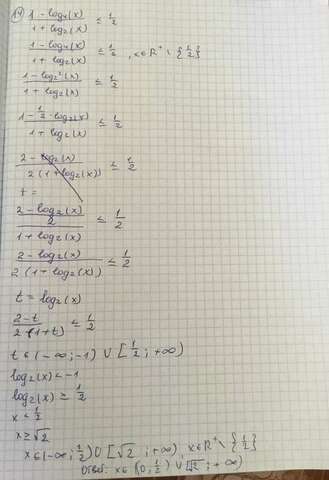 14) 1 - log₄(x) / 1 + log₂(x) ≤ 1/2
1 - log₄(x) / 1 + log₂(x) ≤ 1/2 , x ∈ R⁺ \ {1/2}
1 - log₂²(x) / 1 + log₂(x) ≤ 1/2
1 - 1/2 · log₂(x) / 1 + log₂(x) ≤ 1/2
2 - log₂(x) / 2 (1 + log₂(x)) ≤ 1/2
t =
2 - log₂(x) / 2 / 1 + log₂(x) ≤ 1/2
2 - log₂(x) / 2 (1 + log₂(x)) ≤ 1/2
t = log₂(x)
2 - t / 2 (1 + t) ≤ 1/2
t ∈ (-∞; -1) ∪ [1/2; +∞)
log₂(x) < -1
log₂(x) ≥ 1/2
x < 1/2
x ≥ √2
x ∈ (-∞; 1/2) ∪ [√2; +∞), x ∈ R⁺ \ {1/2}
Ответ: x ∈ (0; 1/2) ∪ [√2; +∞)